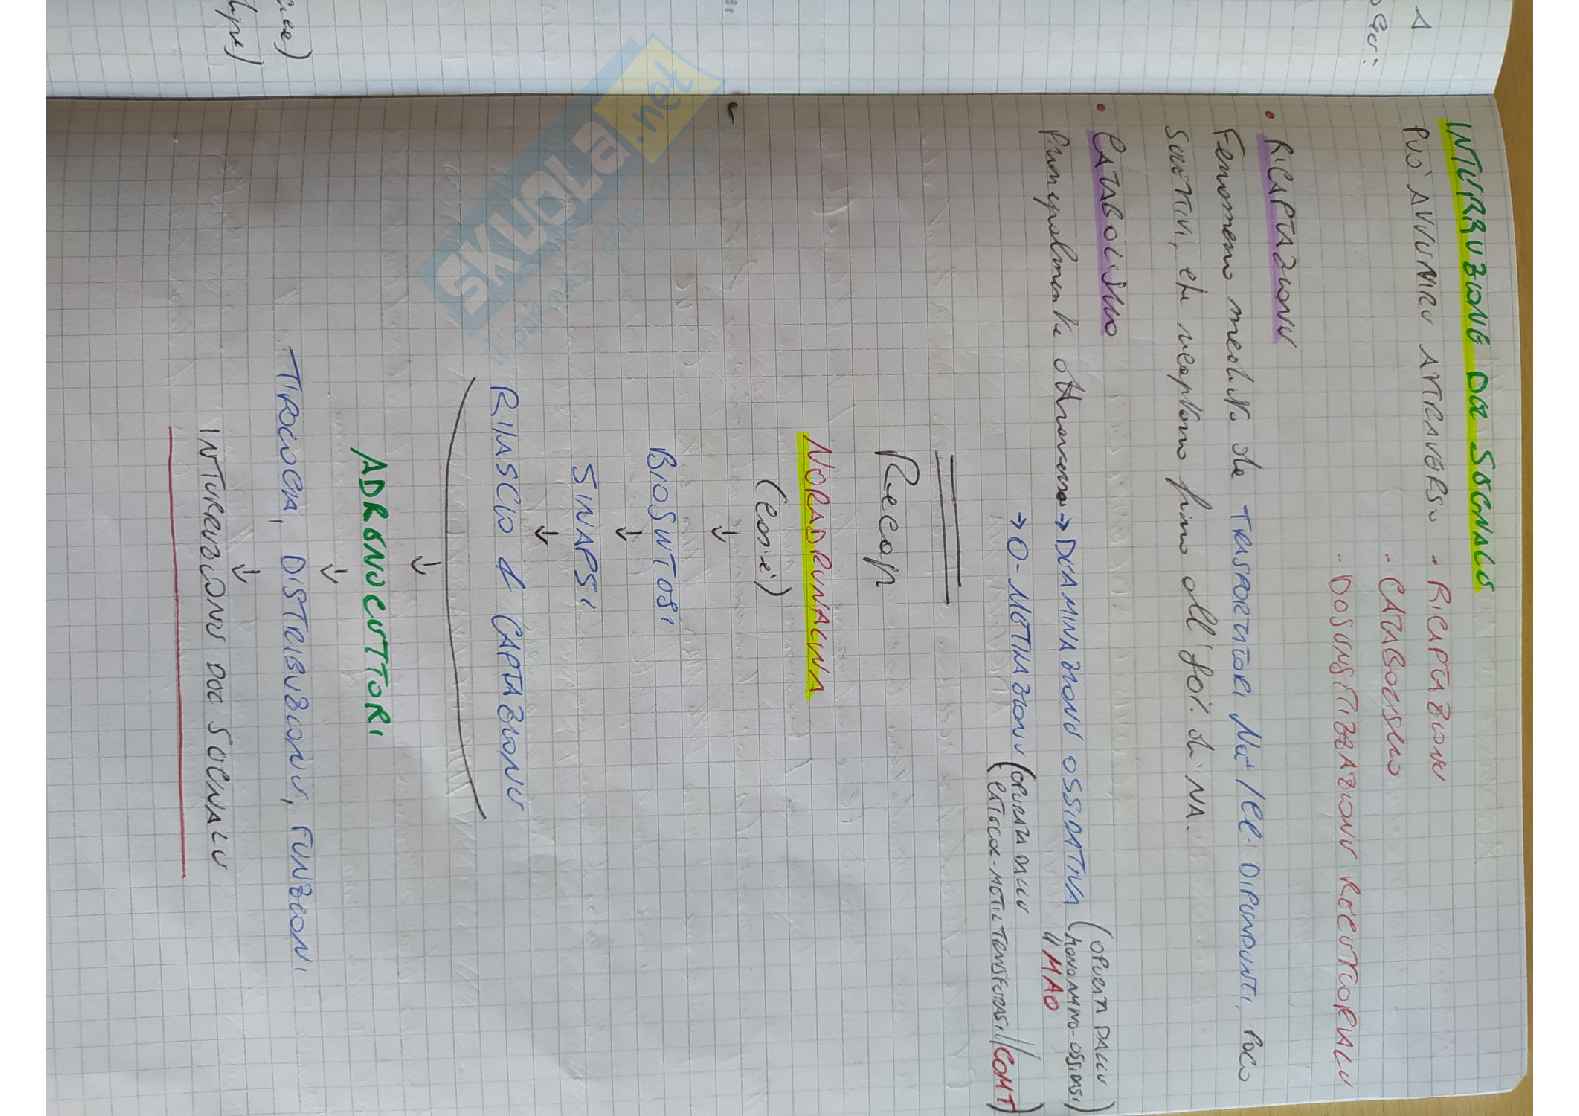 INTERRUZIONE DEL SEGNALE
PUO' AVVENIRE ATTRAVERSO • RICAPTAZIONE
• CATABOLISMO
• DESENSITIZZAZIONE RECETTORIALE
• RICAPTAZIONE
Fenomeno mediato da TRASPORTATORI Na+/Cl- DIPENDENTI, POCO
SELETTIVI, che recaptano fino all'80% di NA.
• CATABOLISMO
Principalmente attraverso → DEAMINAZIONE OSSIDATIVA (OPERATA DALLE
MONOAMMINO-OSSIDASI)
"MAO
→ O-METILAZIONE (OPERATA DALLE
CATECOL-METIL TRANSFERASI/COMT)
Recap
NORADRENALINA
(cos'è)
↓
BIOSINTESI
↓
SINAPSI
↓
RILASCIO e CAPTAZIONE
↓
ADRENOCETTORI
↓
TIPOLOGIA, DISTRIBUZIONE, FUNZIONI
↓
INTERRUZIONE DEL SEGNALE
SKUOLA.net